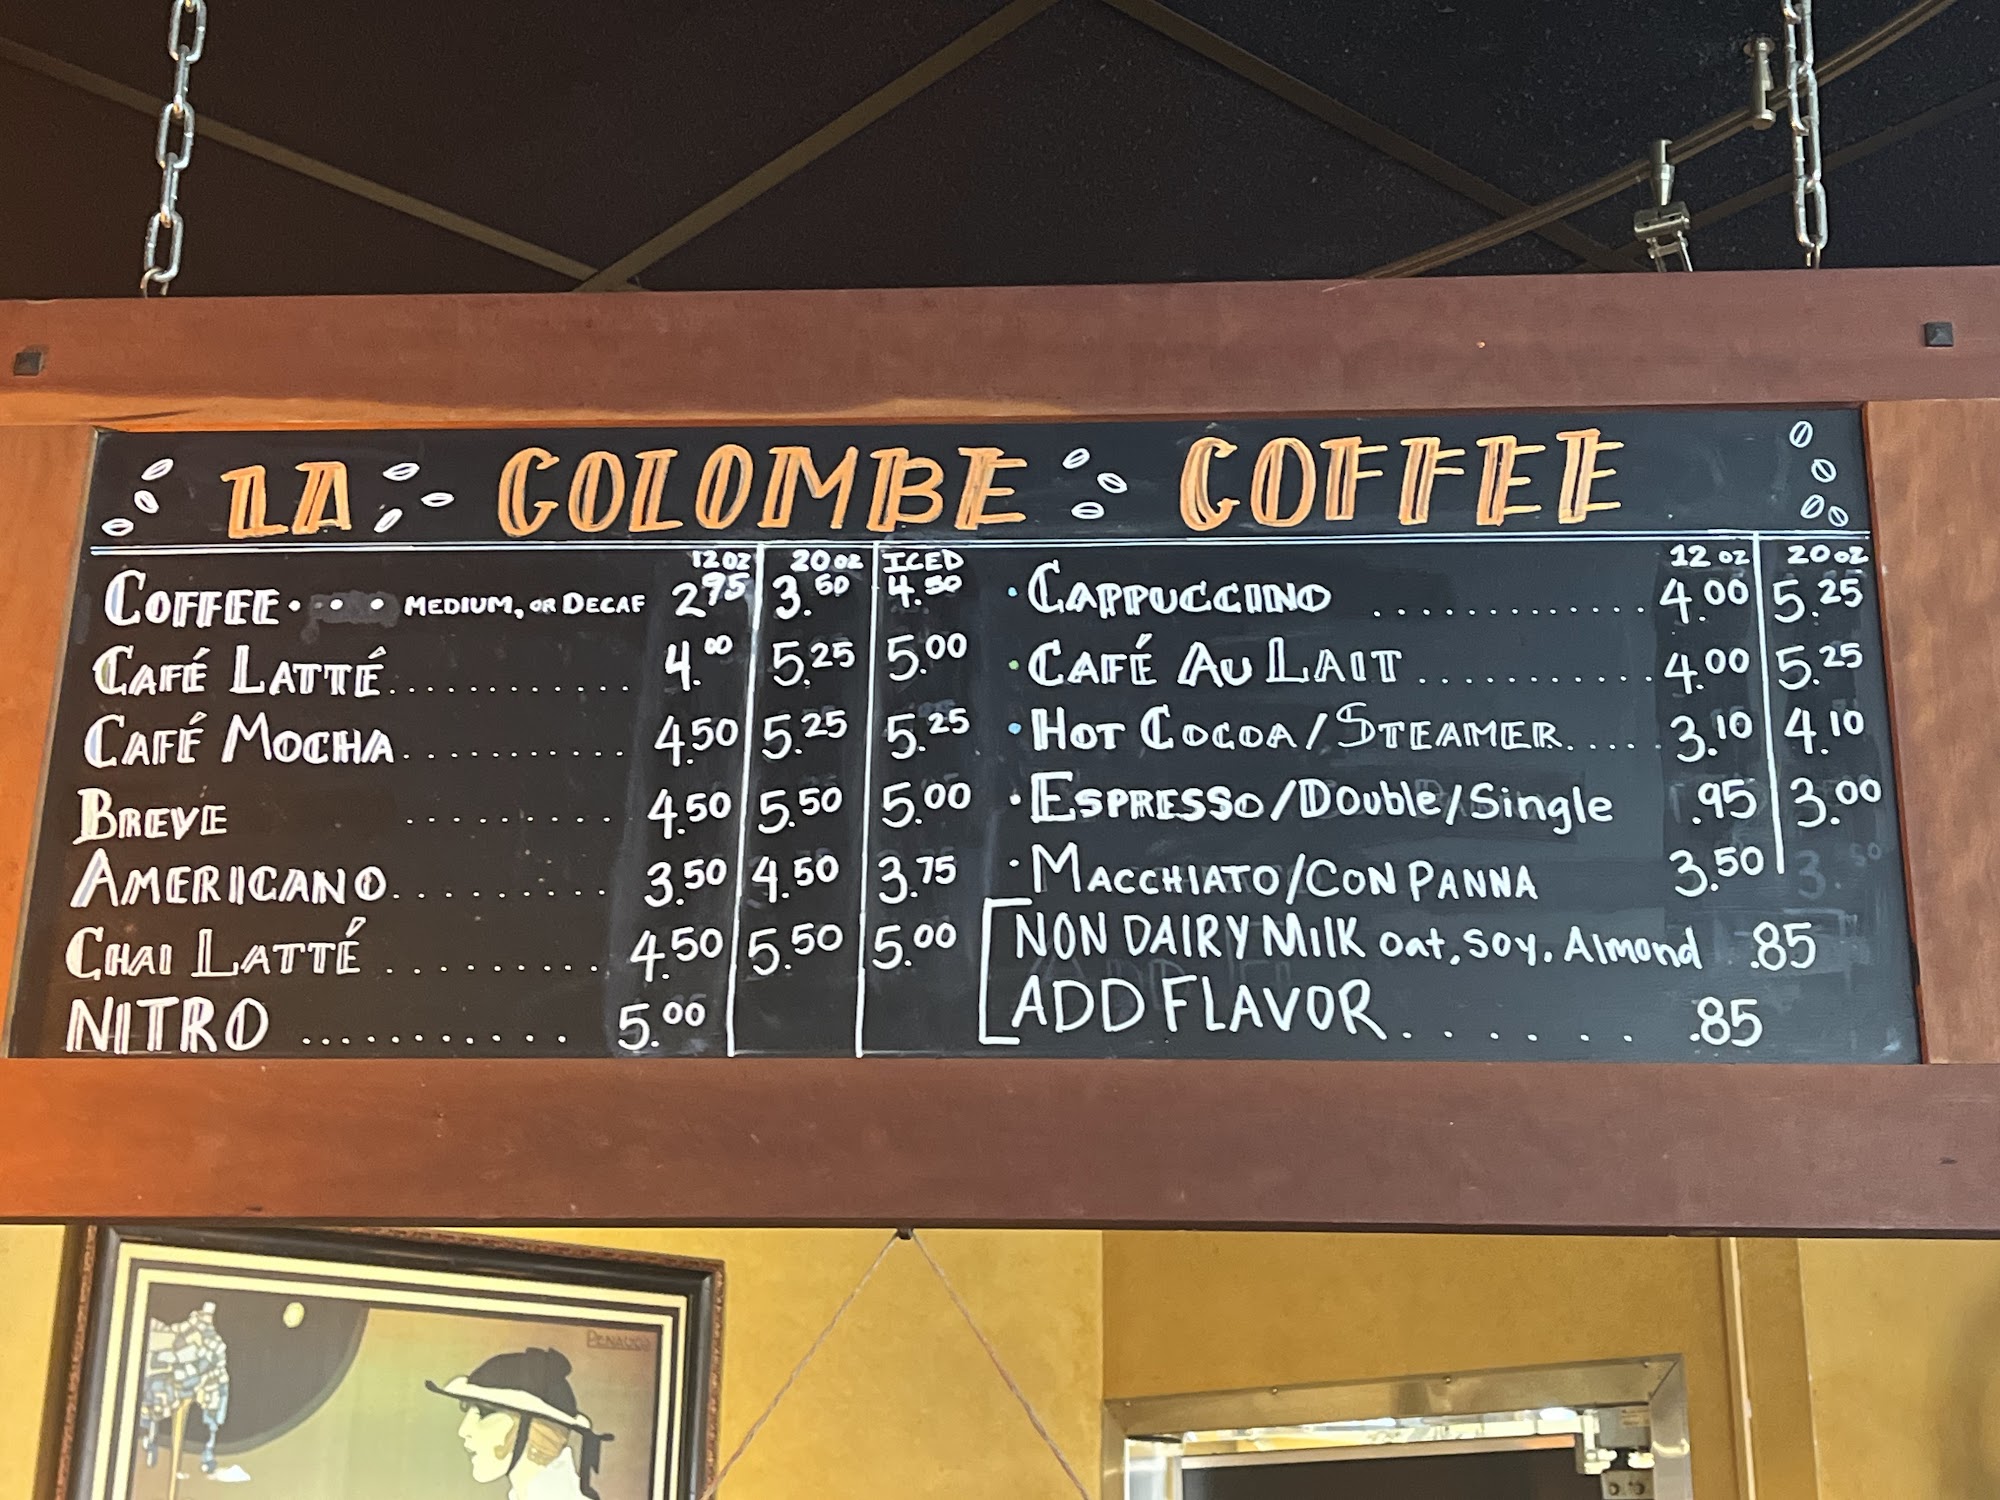 LA COLOMBE COFFEE
12oz 20oz ICED
COFFEE... MEDIUM, OR DECAF 2.95 3.50 4.50
CAFÉ LATTÉ............ 4.00 5.25 5.00
CAFÉ MOCHA........... 4.50 5.25 5.25
BREVE .......... 4.50 5.50 5.00
AMERICANO.......... 3.50 4.50 3.75
CHAI LATTÉ .......... 4.50 5.50 5.00
NITRO ........... 5.00
12oz 20oz
• CAPPUCCINO ............. 4.00 5.25
• CAFÉ AU LAIT ........... 4.00 5.25
• HOT COCOA/STEAMER..... 3.10 4.10
• ESPRESSO/Double/Single .95 3.00
• MACCHIATO/CON PANNA 3.50
NON DAIRY MILK Oat, Soy, Almond .85
ADD FLAVOR....... .85